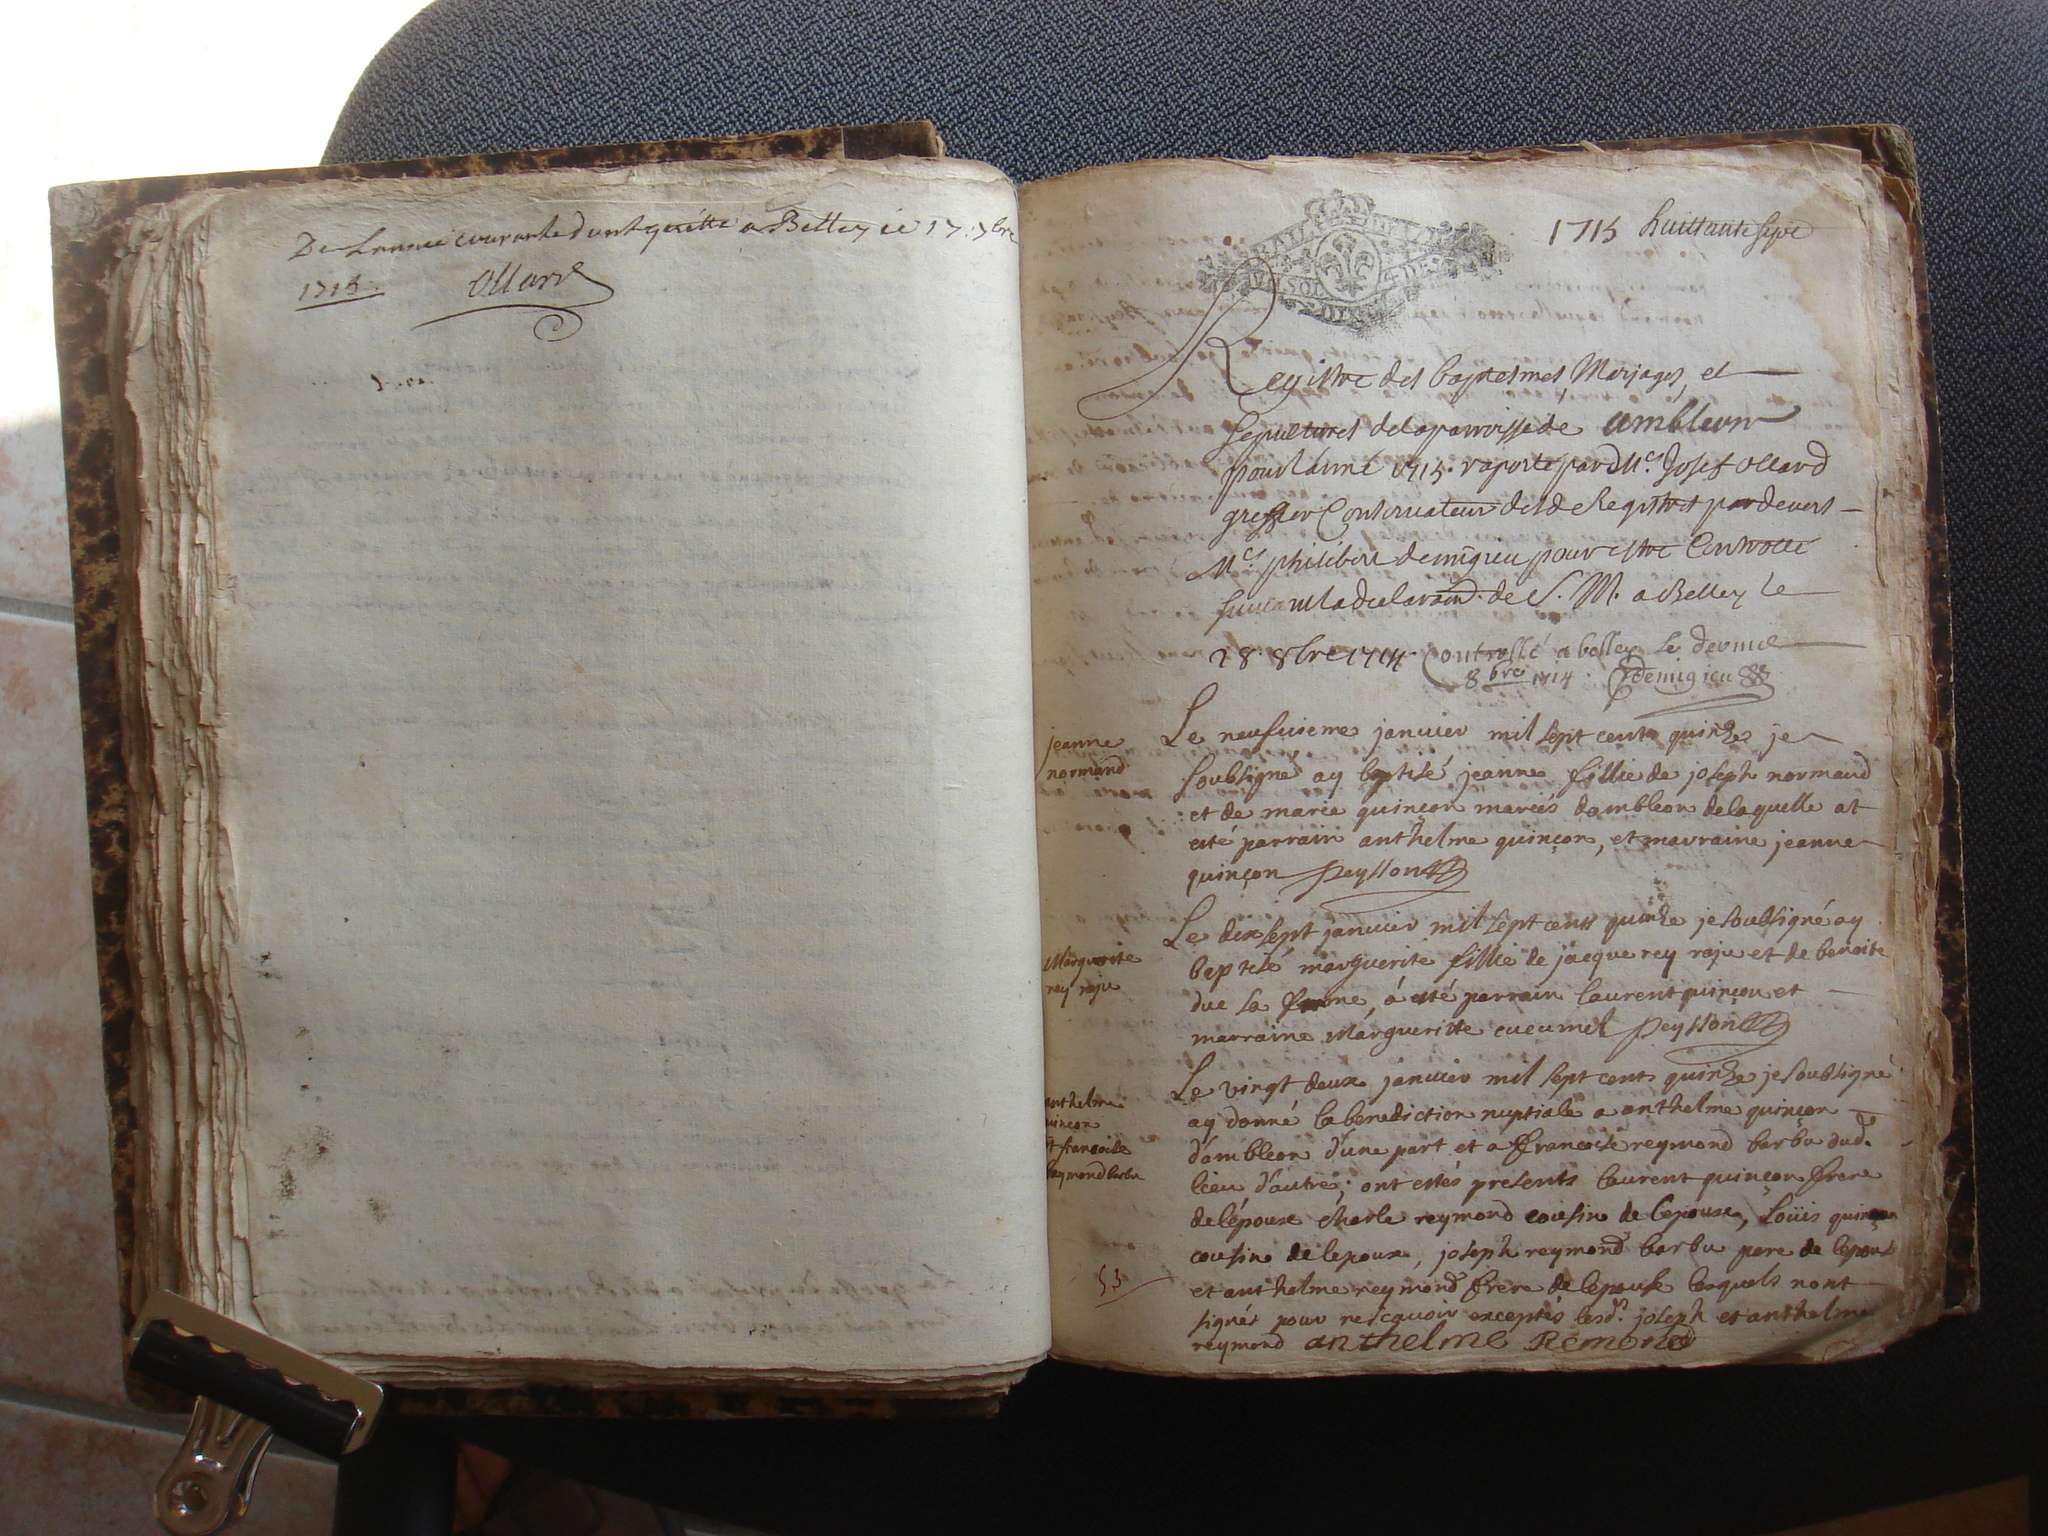 De Lannée courante dont quitte a Belley ce 17 9bre
1715.
Ollard
1715 huittante sept
Registre des baptesmes Marjages et
sepultures de la parroisse de ambleon
pour lanné 1715. raporté par Mc. Josef Ollard
greffier Conservateur desd Registres pardevers
Mc. philibert demigieu pour estre Controllé
suivant la declaraon. de S. M. a Belley le
28 8bre 1714. Controllé a belley le dernier
8bre 1714. Demigieu
jeanne
normand
Le neufvieme janvier mil sept cent quinze je
soubsigné ay baptisé jeanne fillie de joseph normand
et de marie quinçon mariés dambleon delaquelle at
esté parrain anthelme quinçon, et marraine jeanne
quinçon Peysson
Marguerite
rey raju
Le dix sept janvier mil sept cent quinze je soubsigné ay
baptisé marguerite fillie de jacque rey raju et de benoite
duc sa femme, á esté parrain laurent quinçon et
marraine Margueritte cucumel Peysson
anthelme
quinçon
et francoise
reymond barbu
Le vingt deux janvier mil sept cent quinze je soubsigné
ay donné la benediction nuptiale a anthelme quinçon
d'ambleon d'une part et a francoise reymond barbu dud.
lieu d'autre; ont estés presents laurent quinçon frere
de lépoux charle reymond cousin de lepouse, loüis quinçon
cousin de lepoux, joseph reymond barbu pere de lepouse
et anthelme reymond frere de lepouse lesquels nont
signés pour ne sçavoir exceptés lesd. joseph et anthelme
reymond anthelme Remond
53